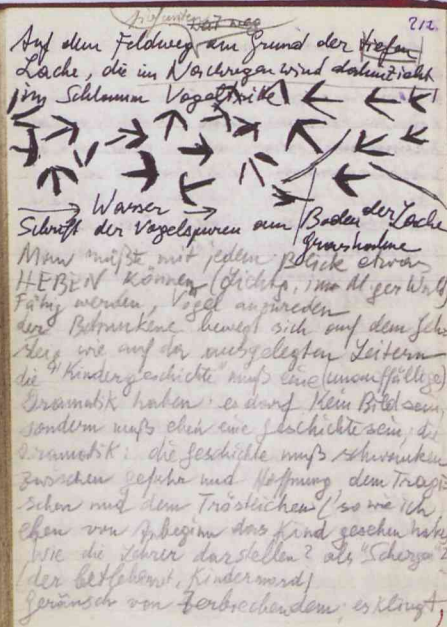 212
Auf dem Feldweg am Grund der tiefen
Lache, die im Nachregenwind dahinzieht
im Schlamm Vogeltritte
Wasser
Schrift der Vogelspuren am Boden der Lache
Grashalme
Man müßte mit jedem Blick etwas
HEBEN können
Fähig werden, Vögel anzureden
der Betrunkene bewegt sich auf dem
wie auf da ausgelegten Leitern
die "Kindergeschichte" muß eine (unauffällige)
Dramatik haben: es darf kein Bild sein
sondern muß eben eine Geschichte sein,
Dramatik: die Geschichte muß schwanken
zwischen Gefahr und Hoffnung, dem Tragi-
schen und dem Tröstlichen (so wie ich
eben von Anbeginn das Kind gesehen habe
Wie die Lehrer darstellen? Als "Scherge"?
(der bethlehemit. Kindermord)
Geräusch von Zerbrechendem: es klingt,